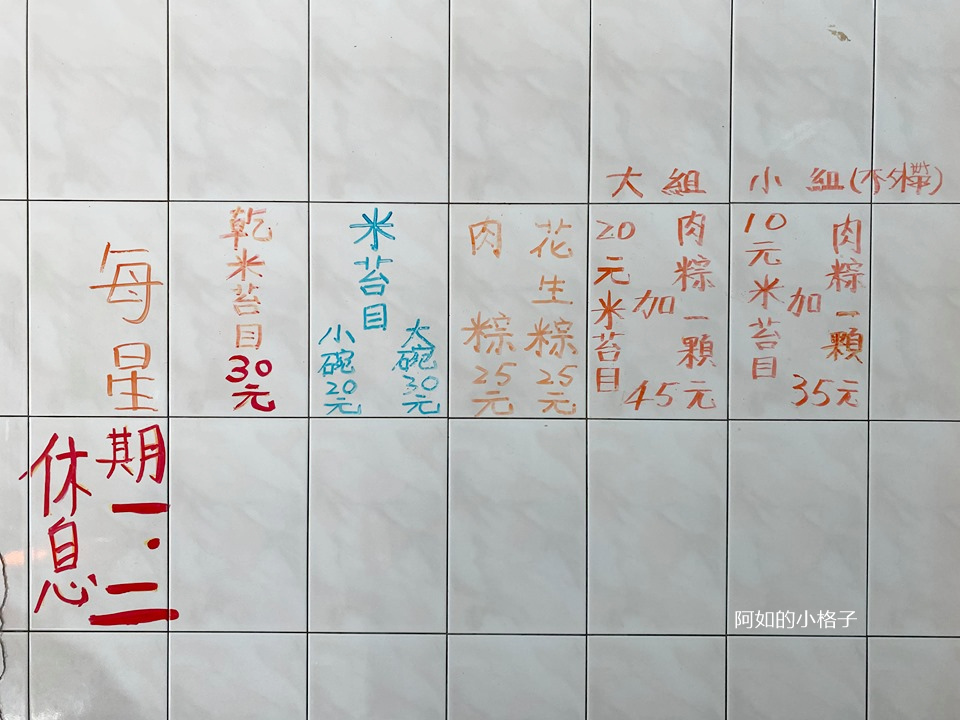 大組
20元米苔目
加
肉粽一顆
45元
小組(不外帶)
10元米苔目
加
肉粽一顆
35元
花生粽25元
肉粽25元
米苔目
大碗30元
小碗20元
乾米苔目30元
每星期一.二
休息
阿如的小格子